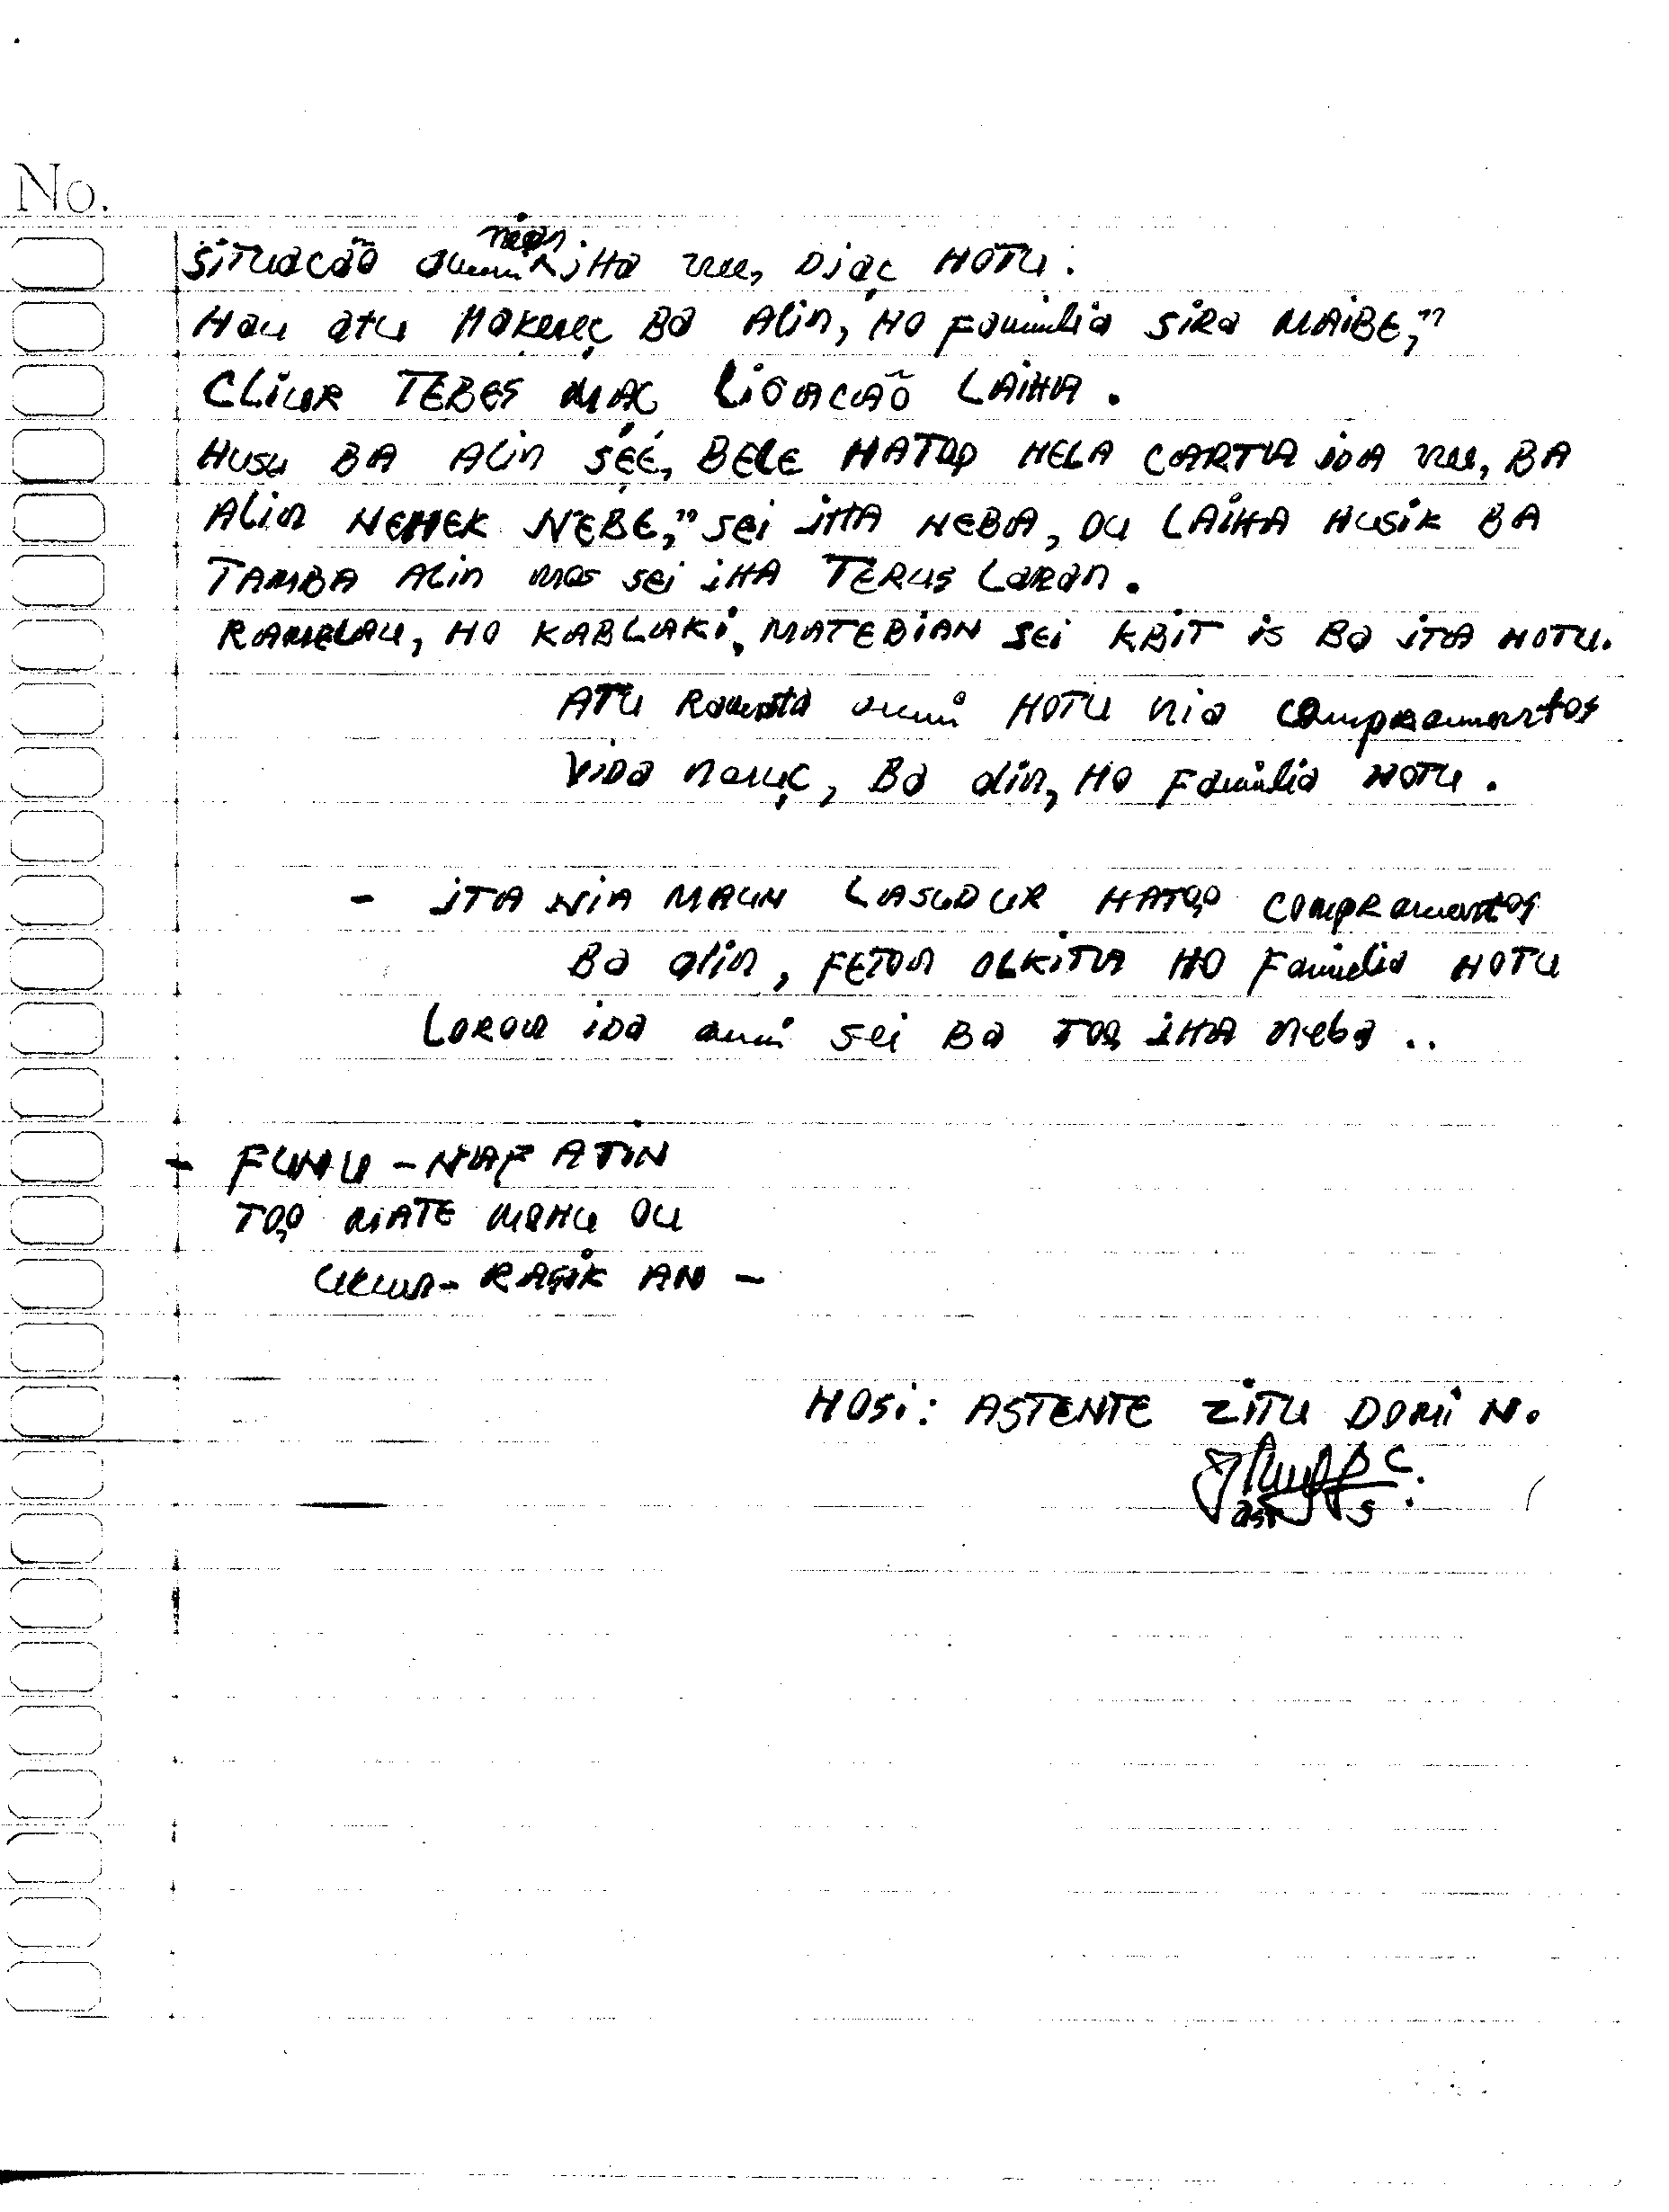 No.
nian.
SiTUacão ami iHa nee, Diaç HOTU.
Hau atu Hakereç Ba Alin, HO Familia SiRa MAiBE,"
CLiUR TEBES MAÇ LiGACÃO LAiHA.
Husu BA ALin SÉÉ, BELE HATOO HELA CARTA iDA nee, BA
ALin NEHEK NEBE," sei iHA NEBA, OU LAiHA HUSiK BA
TAMBA ALin mos sei iHA TERUS Laran.
RAMELAU, HO KABLAKi, MATEBiAN SEi KBiT iS Ba iTA HOTU.
ATU Ramata ami HOTU nia Compramentos
ViDa naruç, Ba alin, HO Familia HOTU.
- iTA NiA MAUN LASUDUR HATOO Compramentos
Ba alin, FETON OLKiTA HO Familia HOTU
LORON iDa ami sei Ba TOO iHA neba ..
- FUNU - NAFATiN
TOO MATE MOHU OU
UKUN - RASiK AN -
HOSi: ASTENTE ZiTU DOMiN.